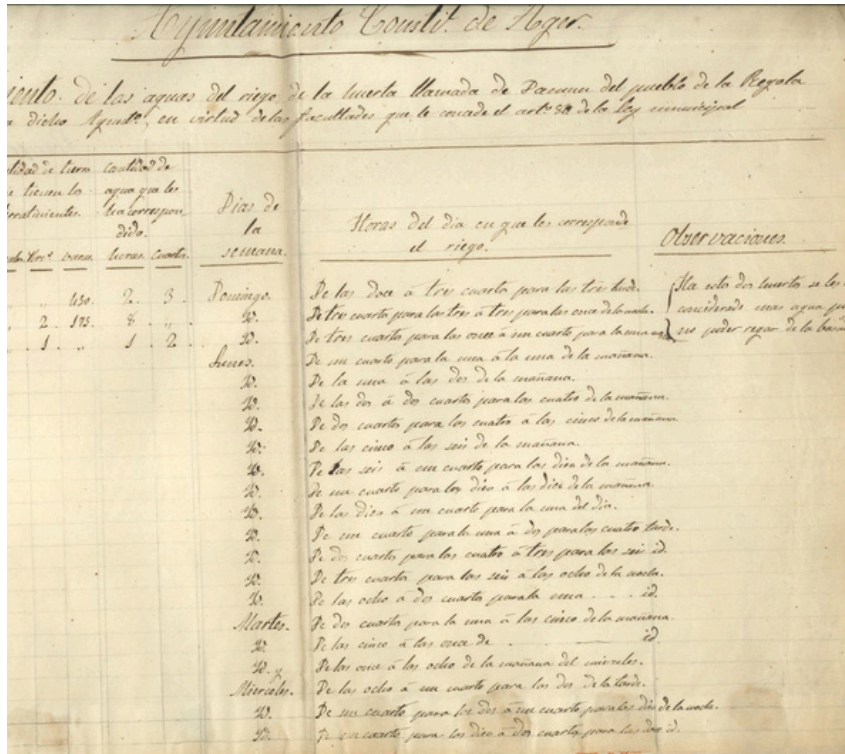 Ayuntamiento Constit.l de Ager.
iento. de las aguas del riego de la huerta llamada de del pueblo de la Regola
a dicho Ayunto, en virtud de las facultades que le concede el arto de la ley municipal
tidad de tierra cantidad de
e tienen los agua que les
rratinientes. ha correspon Dias de Horas del dia en que les corresponde
dido. la el riego. Observaciones.
varas. horas. Cuartos. semana.
" 450. 2. 3. Domingo. De las doce á tres cuartos para las tres tarde. Ha esta dos huertos se les
2. 175. 8. " Id. De tres cuartos para las tres á tres para las once de la noche. considerado mas agua
1. " 1. 2. Id. De tres cuartos para las once á un cuarto para la una no poder regar de la
Lunes. De un cuarto para la una á la una de la mañana.
Id. De la una á las dos de la mañana.
Id. De las dos á dos cuartos para las cuatro de la mañana.
Id. De dos cuartos para las cuatro á las cinco de la mañana.
Id. De las cinco á las seis de la mañana.
Id. De las seis á un cuarto para las diez de la mañana.
Id. De un cuarto para las diez á las diez de la mañana.
Id. De las diez á un cuarto para la una del dia.
Id. De un cuarto para la una á dos para las cuatro tarde.
Id. De dos cuartos para las cuatro á tres para las seis id.
Id. De tres cuartos para las seis á las ocho de la noche.
Id. De las ocho á dos cuartos para la una . . . id.
Martes. De dos cuartos para la una á las cinco de la mañana.
Id. De las cinco á las once de id
Id. y De las once á las ocho de la mañana del miercoles.
Miercoles. De las ocho á un cuarto para las dos de la tarde.
Id. De un cuarto para las dos á un cuarto para las diez de la noche.
Id. De un cuarto para las diez á dos cuartos para las doce id.